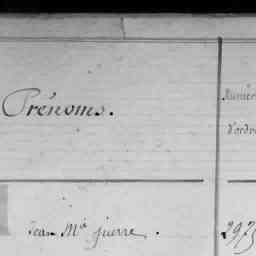 Prénoms.
Numér
d'ordre
Jean Mie Guerre.
2975